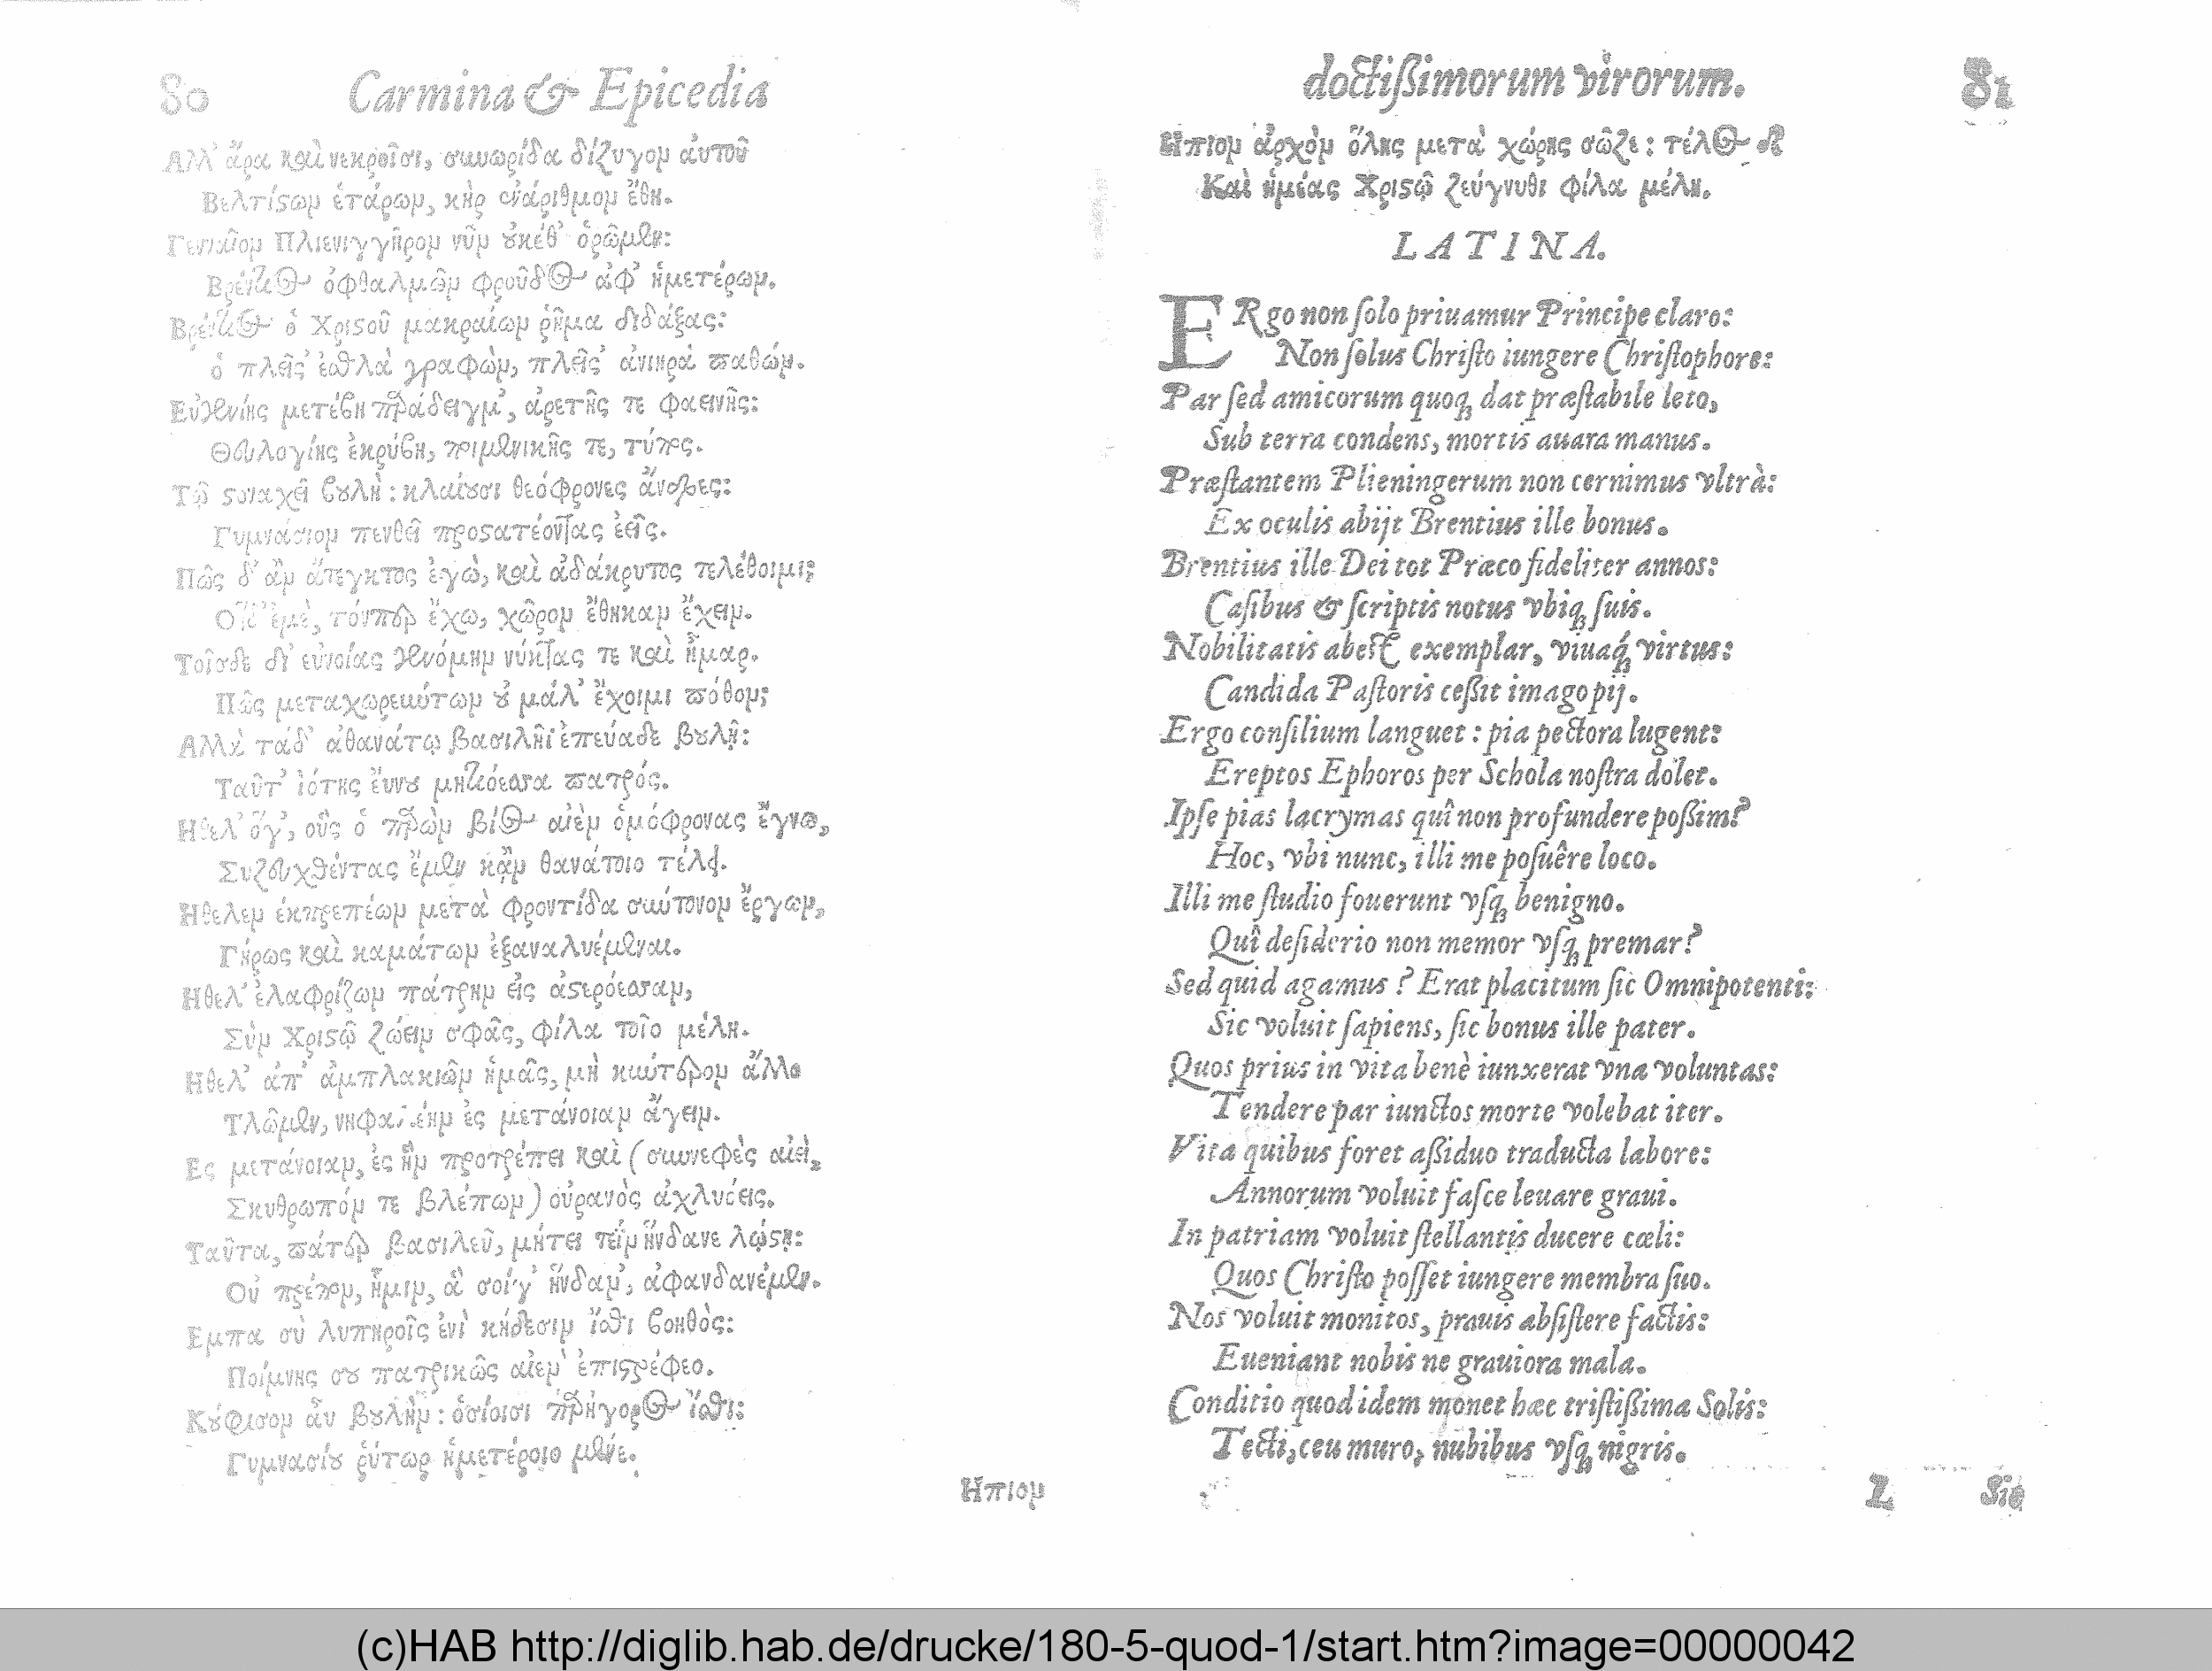 80 Carmina & Epicedia
Αλλ' ἄρα καὶ νεκροῖσι, σωωρίδα δίζυγον ἀυτοῦ
Βελτίστων ἑτάρων, κὴρ ἐνάριθμον ἔθη.
Γενναῖον Πλιενιγγῆρον νῦν οὐκέθ' ὁρῶμεν:
Βρέντιος ὀφθαλμῶν φροῦδος ἀφ' ἡμετέρων.
Βρέντιος ὁ Χριστοῦ μακραίων ῥῆμα διδάξας:
ὁ πλεῖστ' ἐσθλὰ γραφὼν, πλεῖστ' ἀνιηρὰ παθών.
Εὐγενίης μετέβη παράδειγμ', ἀρετῆς τε φαεινῆς:
Θευλογίης ἐκρύβη, ποιμενικῆς τε, τύπος.
Τῷ στοναχεῖ βουλὴ: κλαίουσι θεόφρονες ἄνδρες:
Γυμνάσιον πενθεῖ προστατέοντας ἑεῖς.
Πῶς δ' ἂν ἄτεγκτος ἐγὼ, καὶ ἀδάκρυτος τελέθοιμι;
Οἵδ' ἐμὲ, τόνπερ ἔχω, χῶρον ἔθηκαν ἔχειν.
Τοῖσδε δι' εὐνοίας γενόμην νύκτας τε καὶ ἦμαρ.
Πῶς μεταχωρευύτων οὐ μάλ' ἔχοιμι πόθον;
Αλλὰ τάδ' ἀθανάτῳ βασιλῆϊ ἐπεύαδε βουλῇ:
Ταῦτ' ἰότης ἔννου μητιόεσσα πατρός.
Ηθελ' ὅγ', οὓς ὁ παρὼν βίος αἰὲν ὁμόφρονας ἔγνω,
Συζευχθέντας ἔμεν κᾂν θανάτοιο τέλει.
Ηθελεν ἐκπρεπέων μετὰ φροντίδα σύντονον ἔργων,
Γήρως καὶ καμάτων ἐξαναλυέμεναι.
Ηθελ' ἐλαφρίζων πάτρην εἰς ἀστερόεσσαν,
Σὺν Χριστῷ ζώειν σφᾶς, φίλα τοῖο μέλη.
Ηθελ' ἀπ' ἀμπλακιῶν ἡμᾶς, μὴ κύντερον ἄλλο
Τλῶμεν, ἐς μετάνοιαν ἄγειν.
Ες μετάνοιαν, ἐς ἣν προτρέπει καὶ (συννεφὲς αἰεὶ,
Σκυθρωπόν τε βλέπων) οὐρανὸς ἀχλυόεις.
Ταῦτα, πάτερ βασιλεῦ, μήτει τεΐν ἥνδανε λῴστῃ:
Οὐ πρέπον, ἧμιν, ἃ σοίγ' ἥνδαν', ἀφανδανέμεν.
Εμπα σὺ λυπηροῖς ἐνὶ κήδεσιν ἴσθι βοηθὸς:
Ποίμνης σου πατρικῶς αἰεν' ἐπιστρέφεο.
Κούφισον ἂν βουλὴν: ὁσίοισι παρήγορος ἴσθι:
Γυμνασίου ῥύτωρ ἡμετέροιο μένε.
Ηπιον
doctißimorum virorum. 81
Ηπιον ἀρχὸν ὅλης μετὰ χώρης σῶζε: τέλος δὲ
Καὶ ἡμέας Χριστῷ ζεύγνυθι φίλα μέλη.
LATINA.
ERgo non ſolo priuamur Principe claro:
Non ſolus Chriſto iungere Chriſtophore:
Par ſed amicorum quoq; dat præſtabile leto,
Sub terra condens, mortis auara manus.
Præſtantem Plieningerum non cernimus vltrà:
Ex oculis abijt Brentius ille bonus.
Brentius ille Dei tot Præco fideliter annos:
Caſibus & ſcriptis notus vbiq; ſuis.
Nobilitatis abeſt exemplar, viuaq́; virtus:
Candida Paſtoris ceßit imago pij.
Ergo conſilium languet: pia pectora lugent:
Ereptos Ephoros per Schola noſtra dolet.
Ipſe pias lacrymas quî non profundere poßim?
Hoc, vbi nunc, illi me poſuêre loco.
Illi me ſtudio fouerunt vſq; benigno.
Quî deſiderio non memor vſq; premar?
Sed quid agamus? Erat placitum ſic Omnipotenti:
Sic voluit ſapiens, ſic bonus ille pater.
Quos prius in vita benè iunxerat vna voluntas:
Tendere par iunctos morte volebat iter.
Vita quibus foret aßiduo traducta labore:
Annorum voluit faſce leuare graui.
In patriam voluit ſtellantis ducere cœli:
Quos Chriſto poſſet iungere membra ſuo.
Nos voluit monitos, prauis abſiſtere factis:
Eueniant nobis ne grauiora mala.
Conditio quod idem monet hæc triſtißima Solis:
Tecti, ceu muro, nubibus vſq; nigris.
L Sic
(c)HAB http://diglib.hab.de/drucke/180-5-quod-1/start.htm?image=00000042